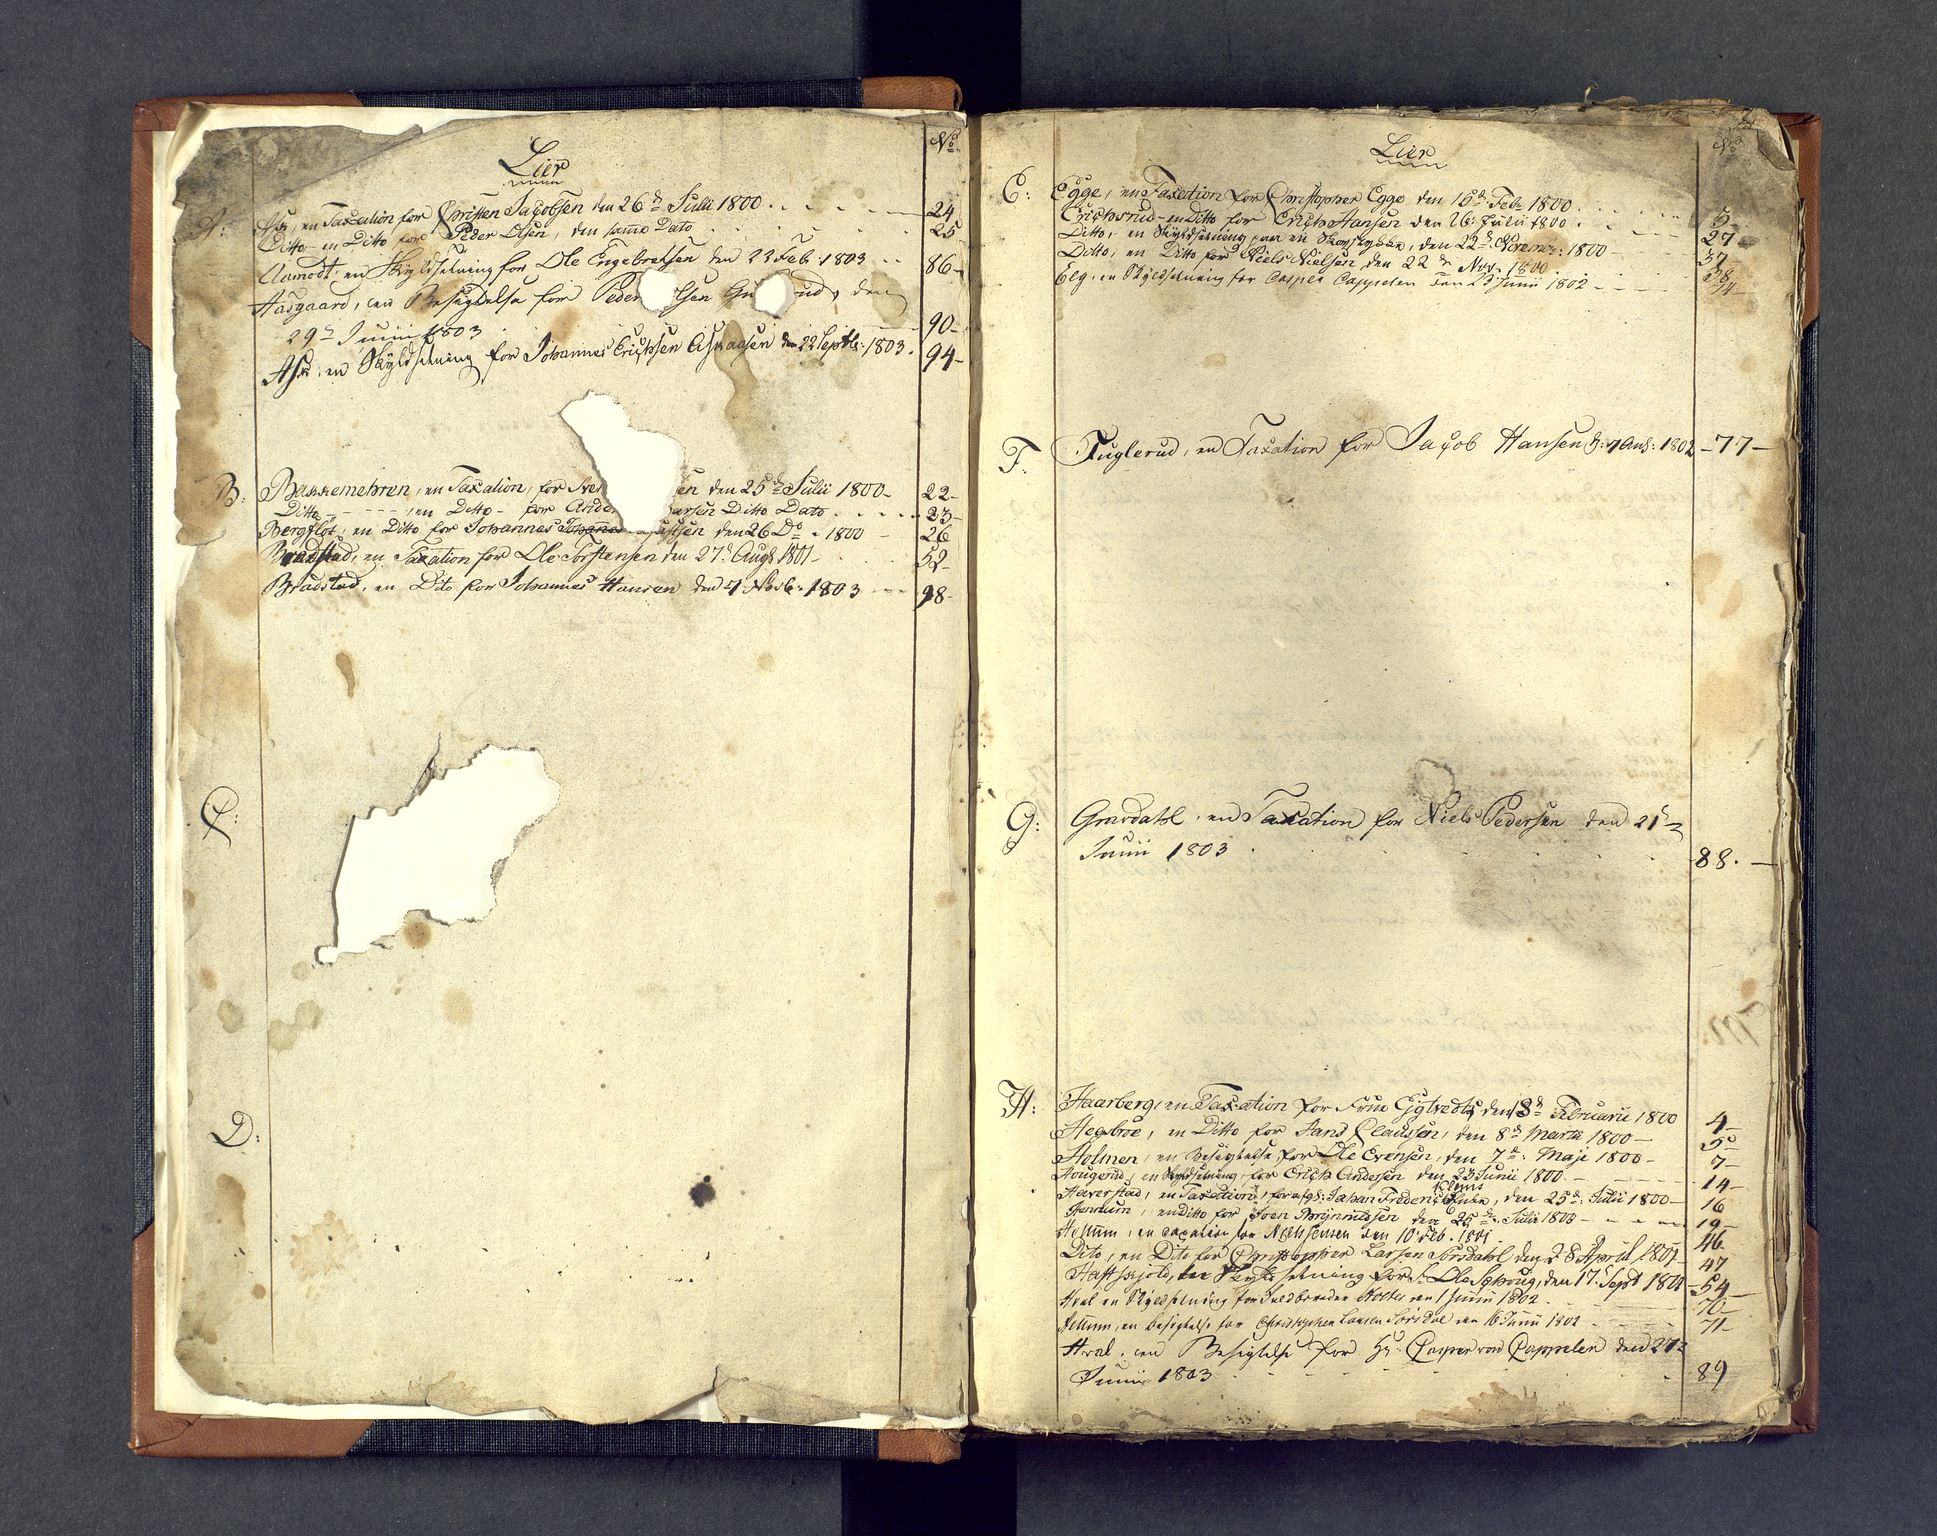 Lier
No
A: Ask, en Taxation for Christen Jacobsen den 26de Julii 1800 24
Ditto en Ditto for Peder Olsen, den samme Dato 25
Aamodt, en Skyldsetning for Ole Engebretsen den 23 Feb 1803 86
Aasgaard, en Besigtelse for Peder sen Gu rud, den
29de Junii 1803 90
Ask, en Skyldsetning for Johannes Erichsen den 22 Septbr: 1803. 94
B: Bakkemehren, en Taxation, for sen den 25de Julii 1800 22
Ditto en Ditto for Ander arsen Ditto Dato 23
Bergflot, en Ditto for Johannes den 26 Do 1800 26
Bradstad, en Taxation for Ole Torstensen den 27de Augt 1801 52
Bradstad, en Dito for Johannes Hansen den 1803 98
C:
D:
Lier
No
E: Egge, en Taxation for Christopher Egge den 15de Feb: 1800 5
Erichsrud en Ditto for Erich Hansen den 26: Julii 1800 27
Ditto, en Skyldsetning paa en den 22de Novembr: 1800 37
Ditto, en Ditto for Niels Nielsen, den 22de Nov. 1800 38
Elg, en Skyldsetning for Casper Cappelen den 23 Junii 1802 74
F: Fuglerud, en Taxation for Jacob Hansen d: 7 Aug: 1802 77
G: Gravdahl, en Taxation for Niels Pedersen den 21de
Junii 1803 88.
H: Haarberg, en Taxation for Frue den 13de Februarii 1800 4
Hegsbroe, en Ditto for Hans Claussen, den 8de Martii 1800 5
Holmen, en Besigtelse, for Ole Evensen, den 7de: Maji 1800 7
Hougerud, en Skyldsetning for Erich Andersen den 23 Junii 1800 14
Haverstad, en Taxation, for afg: Johan Frederic Klems , den 25de: Julii 1800 16
Hennum, en ditto for Joen Brynnildsen den 25de Julii 1800 19
Hellum, en Taxation for Niels Jensen den 10 Feb. 1801. 46
Dito, en Dito for Christopher Larsen Sørsdahl den 28 April 1801 47
en Skyldsetning for Sr Ole Schoug, den 17 Sept 1801 54
Hval en Skyldsetning for Holtes den 1 Junii 1802. 70
Hellum, en besigtelse for Christopher Larsen Sørsdal den 16 Junii 1802 71
Hval, en Besigtelse for Hr. Casper von Cappelen den 27de
Junii 1803 89